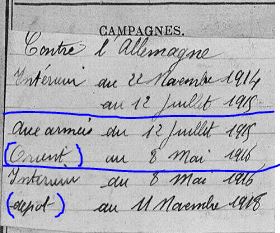 CAMPAGNES.
Contre l'Allemagne
Intérieur du 22 Novembre 1914
au 12 Juillet 1915
aux armées du 12 Juillet 1915
(Orient) au 8 Mai 1916
Intérieur du 8 Mai 1916
(depot) au 11 Novembre 1918